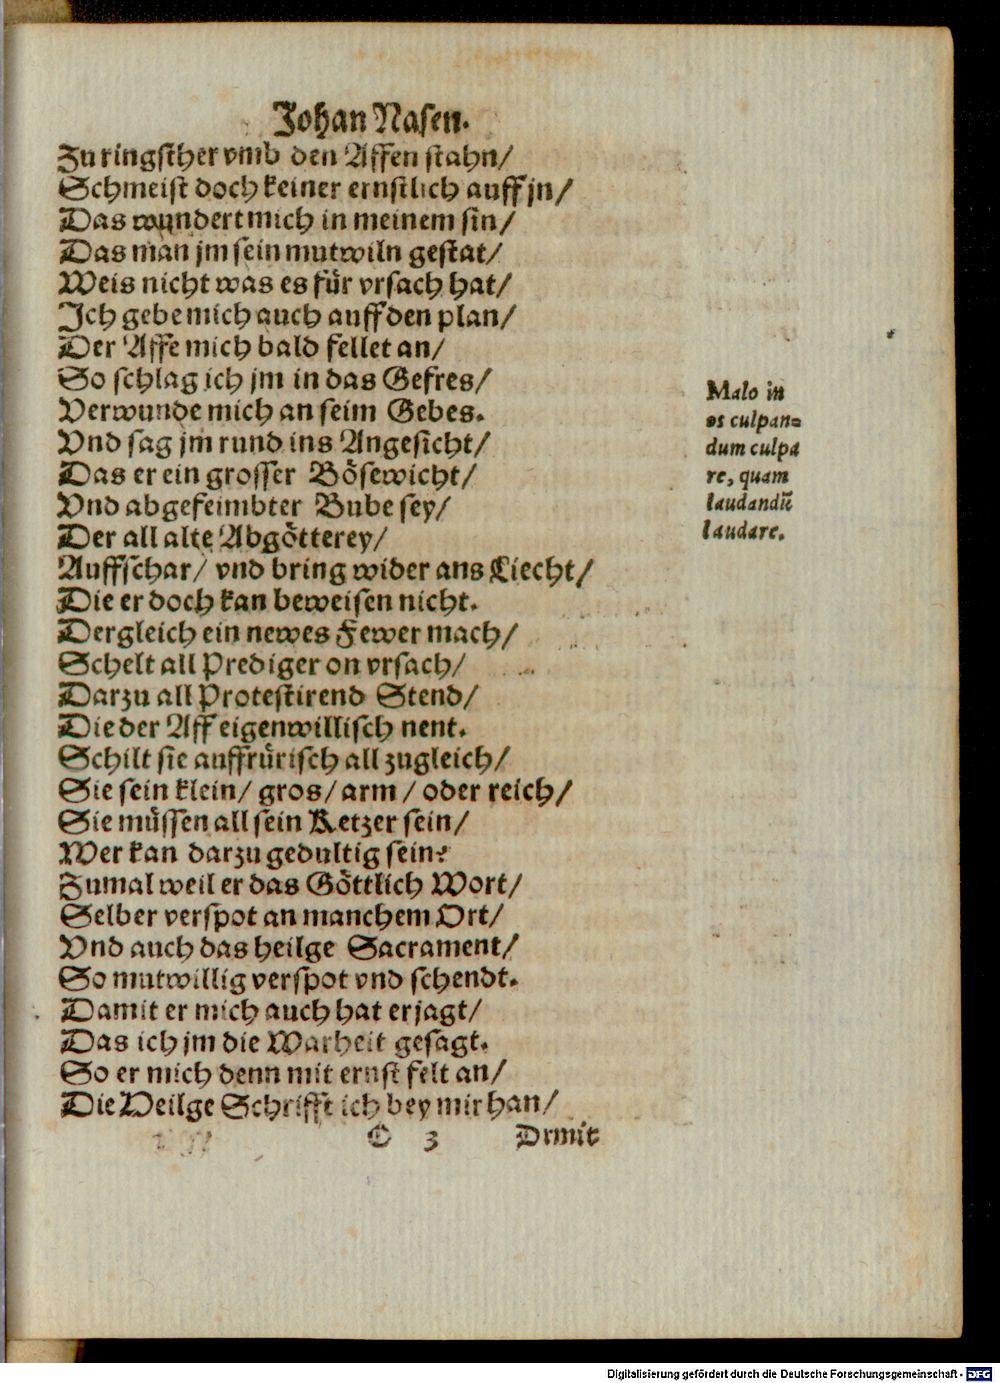 Johan Nasen.
Zu ringsther vmb den Affen stahn/
Schmeist doch keiner ernstlich auff jn/
Das wundert mich in meinem sin/
Das man jm sein mutwiln gestat/
Weis nicht was es für vrsach hat/
Ich gebe mich auch auff den plan/
Der Affe mich bald fellet an/
So schlag ich jm in das Gefres/
Verwunde mich an seim Gebes.
Vnd sag jm rund ins Angesicht/
Das er ein grosser Bösewicht/
Vnd abgefeimbter Bube sey/
Der all alte Abgötterey/
Auffschar/ vnd bring wider ans Liecht/
Die er doch kan beweisen nicht.
Dergleich ein newes Fewer mach/
Schelt all Prediger on vrsach/
Darzu all Protestirend Stend/
Die der Aff eigenwillisch nent.
Schilt sie auffrürisch all zugleich/
Sie sein klein/ gros/ arm/ oder reich/
Sie müssen all sein Ketzer sein/
Wer kan darzu gedultig sein?
Zumal weil er das Göttlich Wort/
Selber verspot an manchem Ort/
Vnd auch das heilge Sacrament/
So mutwillig verspot vnd schendt.
Damit er mich auch hat erjagt/
Das ich jm die Warheit gesagt.
So er mich denn mit ernst felt an/
Die Heilge Schrifft ich bey mir han/
C 3 Drmit
Malo in
os culpan=
dum culpa
re, quam
laudandũ
laudare.
Digitalisierung gefördert durch die Deutsche Forschungsgemeinschaft - DFG